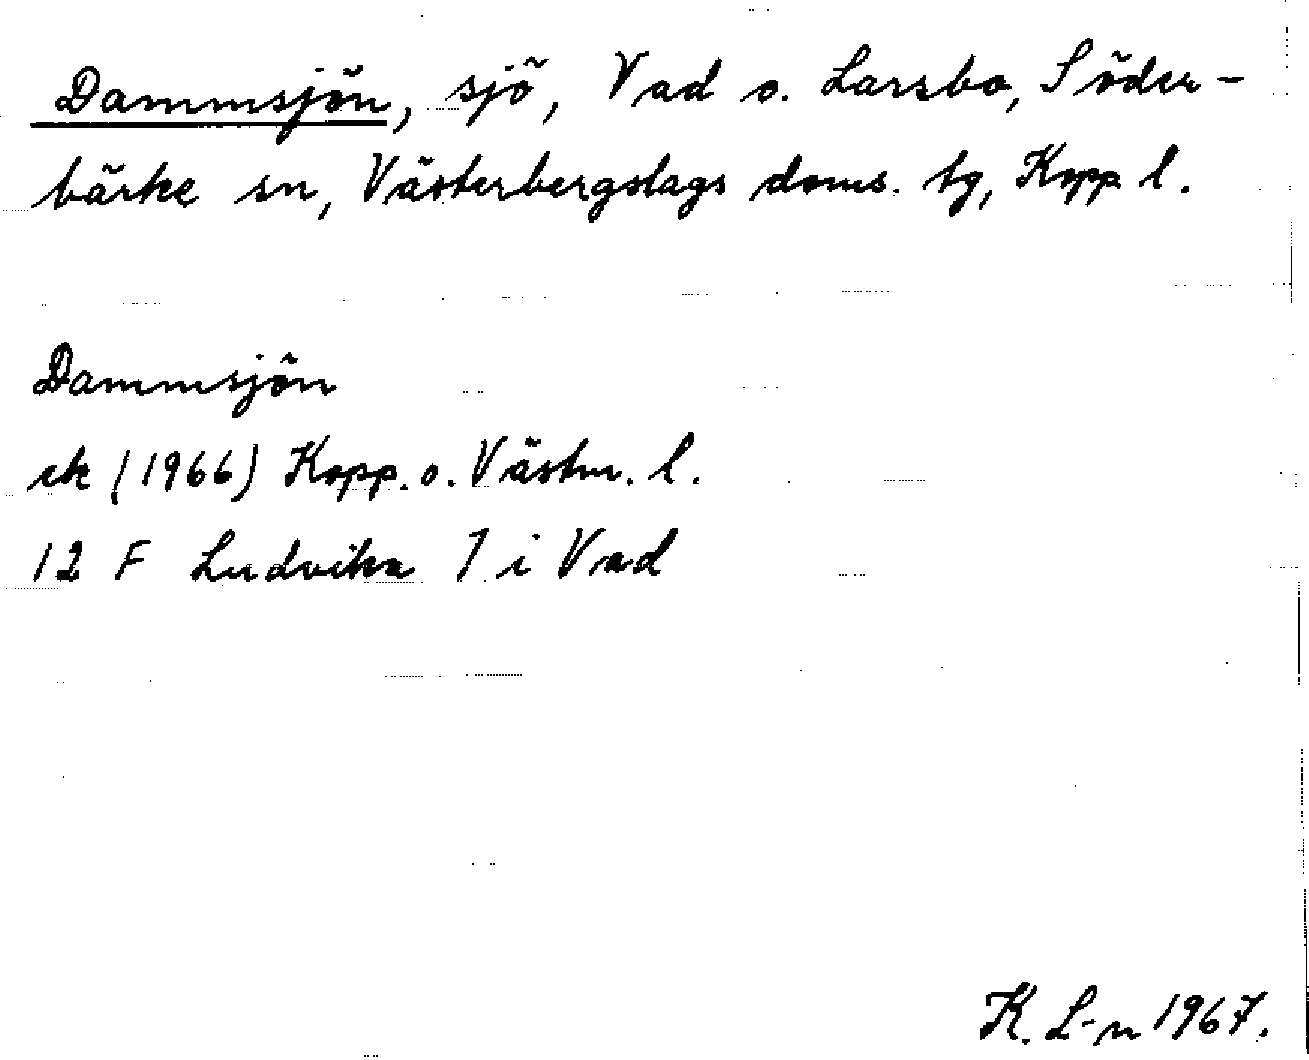 Dammsjön, sjö, Vad o. Larsbo, Söder-
bärke sn, Västerbergslags doms. tg, Kopp l.
Dammsjön
ek (1966) Kopp. o. Västm. l.
12 F Ludvika 7 i Vad
K. L-n 1967.